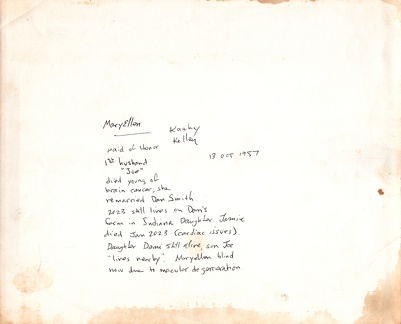 MaryEllen
Kathy
Kelley
maid of Honor
13 OCT 1957
1st husband
"Joe"
died young of
brain cancer, she
remarried Dan Smith
2023 still lives on Dan's
farm in Indiana Daughter Jeanie
died Jan 2023 (cardiac issues).
Daughter Dami still alive, son Joe
"lives nearby". MaryEllen blind
now due to macular degeneration